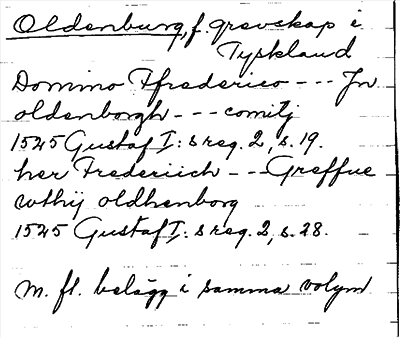 Oldenburg, f. grevskap i
Tyskland
Domino Ffrederico --- Jn
oldenborgh --- comitj
1525 Gustaf I: s reg. 2, s. 19.
her Frederiich -- Greffue
wthij oldhenborg
1525 Gustaf I: s reg. 2, s. 28.
M. fl. belägg i samma volym